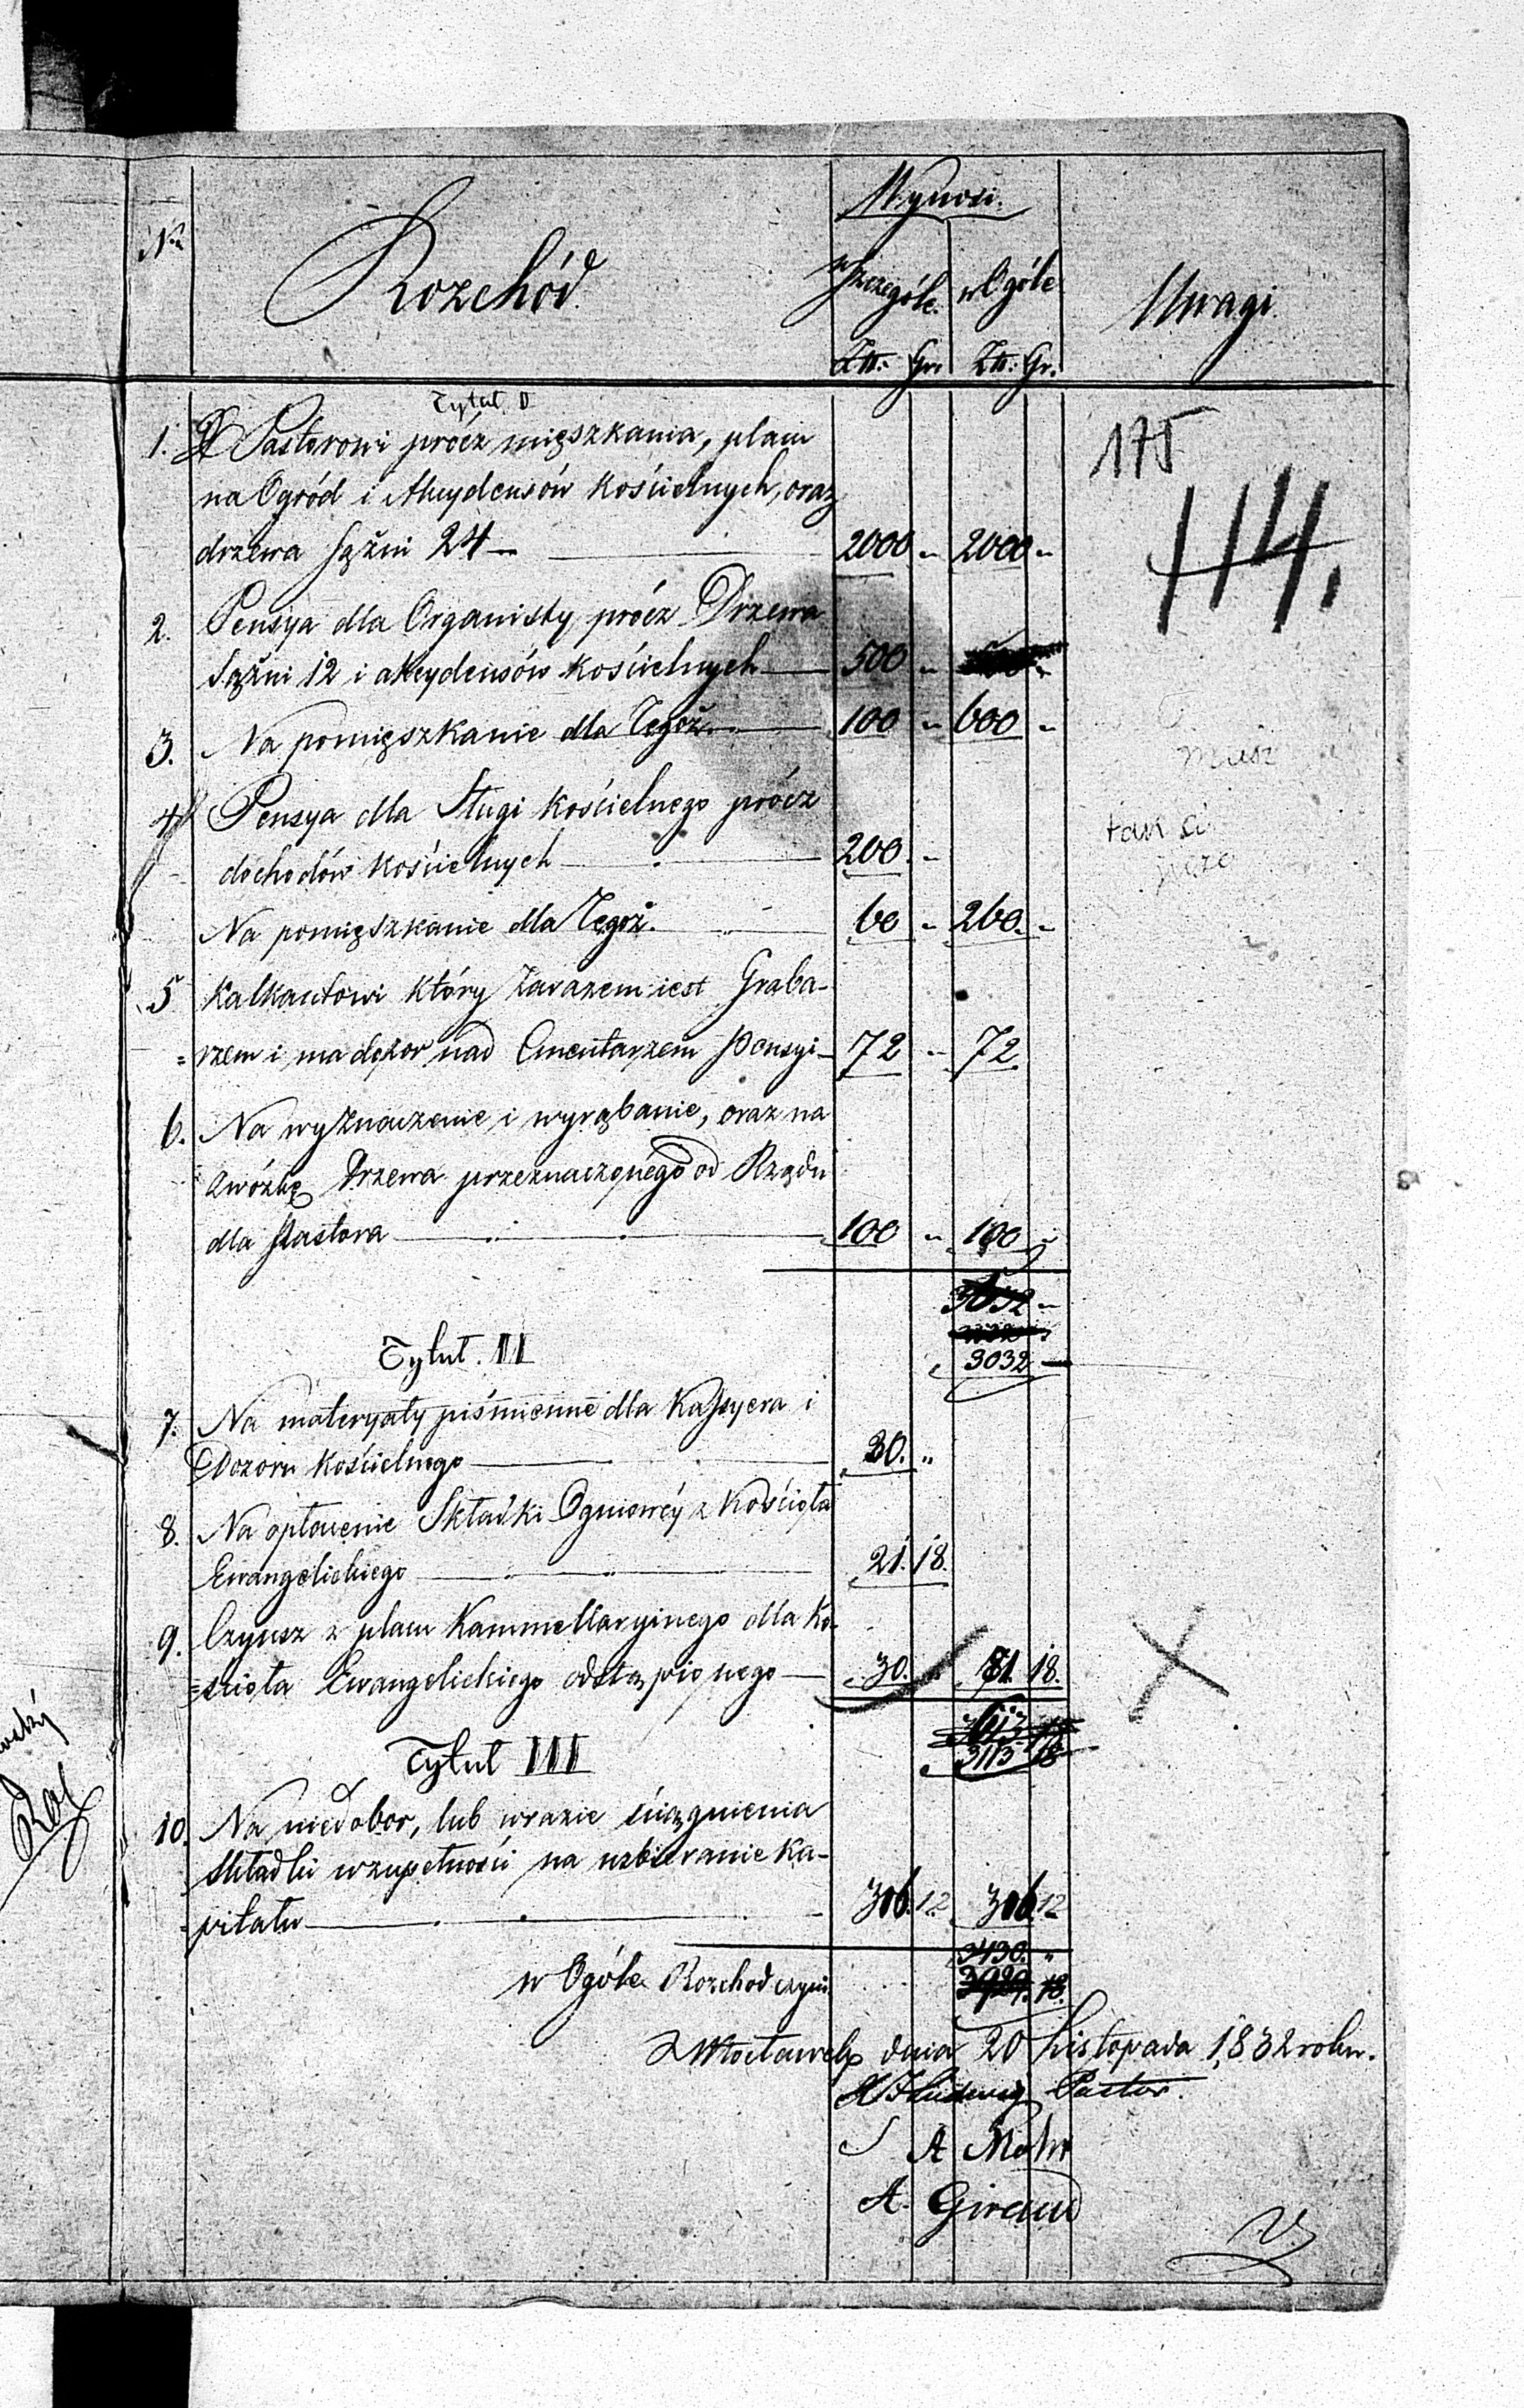 No
Rozchód.
Wynosi.
w Szczególe. w Ogóle
Złt: Gr. Złt: Gr.
Uwagi.
175
114.
Tytuł I
1. Pastorowi prócz mięszkania, placu
na Ogród i Akcydensów kościelnych, oraz
drzewa Sążni 24 — 2000 „ 2000 „
2. Pensya dla Organisty prócz Drzewa
Sążni 12 i akcydensów kościelnych — 500 „
3. Na pomięszkanie dla Tegoż — 100 „ 600 „
4 Pensya dla Sługi kościelnego prócz
dochodów kościelnych — 200 „
Na pomięszkanie dla Tegoż. — 60 „ 260. „
5 Kalkantowi który zarazem iest Graba-
=rzem i ma dozor nad Cmentarzem pensyi — 72 „ 72.
6. Na wyznaczenie i wyrąbanie, oraz na
zwózkę Drzewa przeznaczonego od Rządu
dla Pastora — 100 „ 100 „
3032 „
3032 —
Tytuł. II
7. Na materyały piśmienne dla Kassyera i
Dozoru kościelnego — 30. „
8. Na opłacenie Składki Ogniowéy z Kościoła
Ewangelickiego — 21. 18.
9. Czynsz z placu Kammellaryinego dla Ko-
=scioła Ewangelickiego odstąpionego — 30. „ 81. 18.
3113 18
Tytuł III
10. Na niedobor, lub wrazie ściągnienia
składki wzupełności na uzbieranie Ka-
=pitału — 316. 12 316. 12
3430. „
w Ogóle Rozchod czyni 3929. 18.
z Włocławek dnia 20 Listopada 1832 roku.
Ludwig Pastor.
A Mohr
A. Giraud